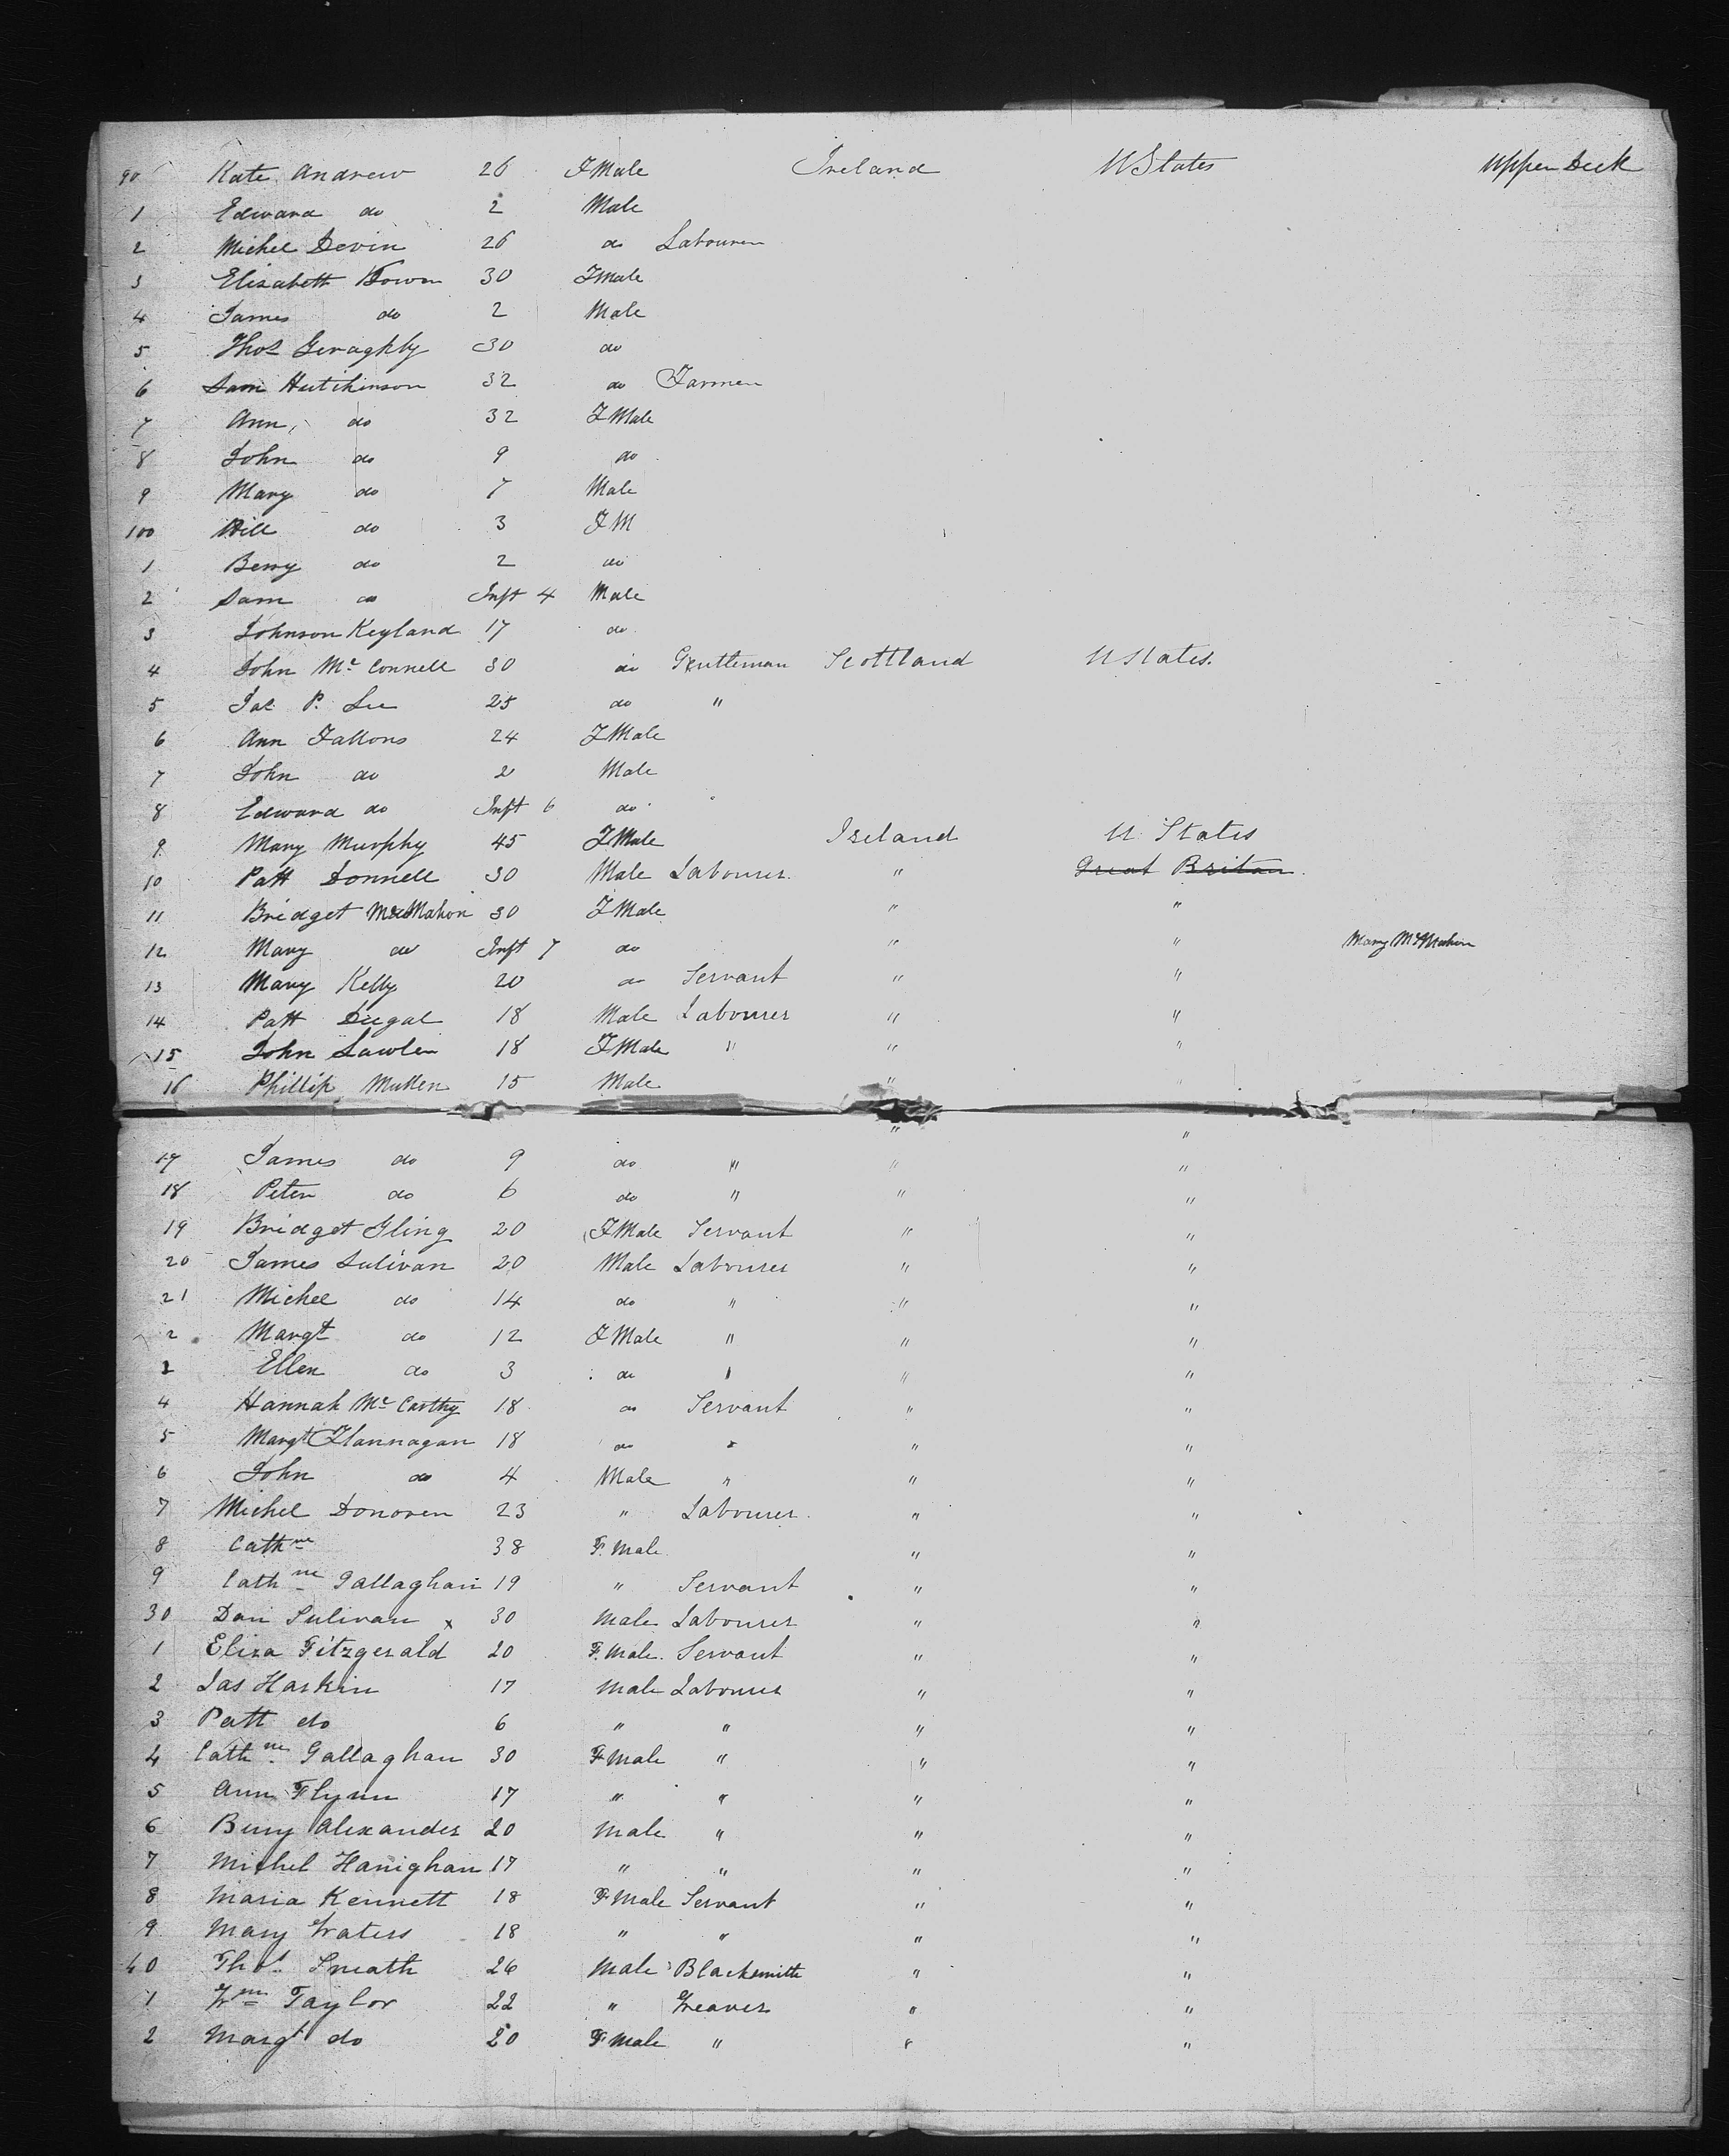 90 Kate Andrew 26 FMale Ireland UStates Upper Deck
1 Edward do 2 Male
2 Michel Devin 26 do Labourer
3 Elizabeth Bowen 30 FMale
4 James do 2 Male
5 Thos Geraghty 30 do
6 Sam Hutchinson 32 do Farmer
7 Ann do 32 FMale
8 John do 9 do
9 Mary do 7 Male
100 Will do 3 FM
1 Benny do 2 do
2 Sam do Inft 4 Male
3 Johnson Keyland 17 do
4 John Mc Connell 30 do Gentleman Scottland UStates.
5 Jas P. Lee 25 do "
6 Ann Fallons 24 FMale
7 John do 2 Male
8 Edward do Inft 6 do
9 Mary Murphy 45 FMale Ireland U States
10 Patt Donnell 30 Male Labourer " Great Britan
11 Bridget McMahon 30 FMale " "
12 Mary do Inft 7 do " " Mary McMahon
13 Mary Kelly 20 do Servant " "
14 Patt Dugal 18 Male Labourer " "
15 John Lawler 18 FMale " " "
16 Phillip Mullen 15 Male "
" "
17 James do 9 do " " "
18 Peter do 6 do " " "
19 Bridget Gling 20 FMale Servant " "
20 James Sulivan 20 Male Labourer " "
21 Michel do 14 do " " "
2 Margt do 12 FMale " " "
3 Ellen do 3 do " " "
4 Hannah Mc Carthy 18 do Servant " "
5 Margt Flannagan 18 do " " "
6 John do 4 Male " " "
7 Michel Donoven 23 " Labourer " "
8 Cathne 38 F.Male " "
9 Cathne Gallaghan 19 " Servant " "
30 Dan Sulivan x 30 Male Labourer " "
1 Eliza Fitzgerald 20 F.Male. Servant " "
2 Jas Harkin 17 Male Labourer " "
3 Patt do 6 " " " "
4 Cathne Gallaghan 30 FMale " " "
5 Ann Flynn 17 " " " "
6 Benny Alexander 20 Male " " "
7 Michel Hanighan 17 " " " "
8 Maria Kennett 18 FMale Servant " "
9 Mary Waters 18 " " " "
40 Thos Sneath 26 Male Blacksmith " "
1 Wm Taylor 22 " Weaver " "
2 Margt do 20 FMale " " "